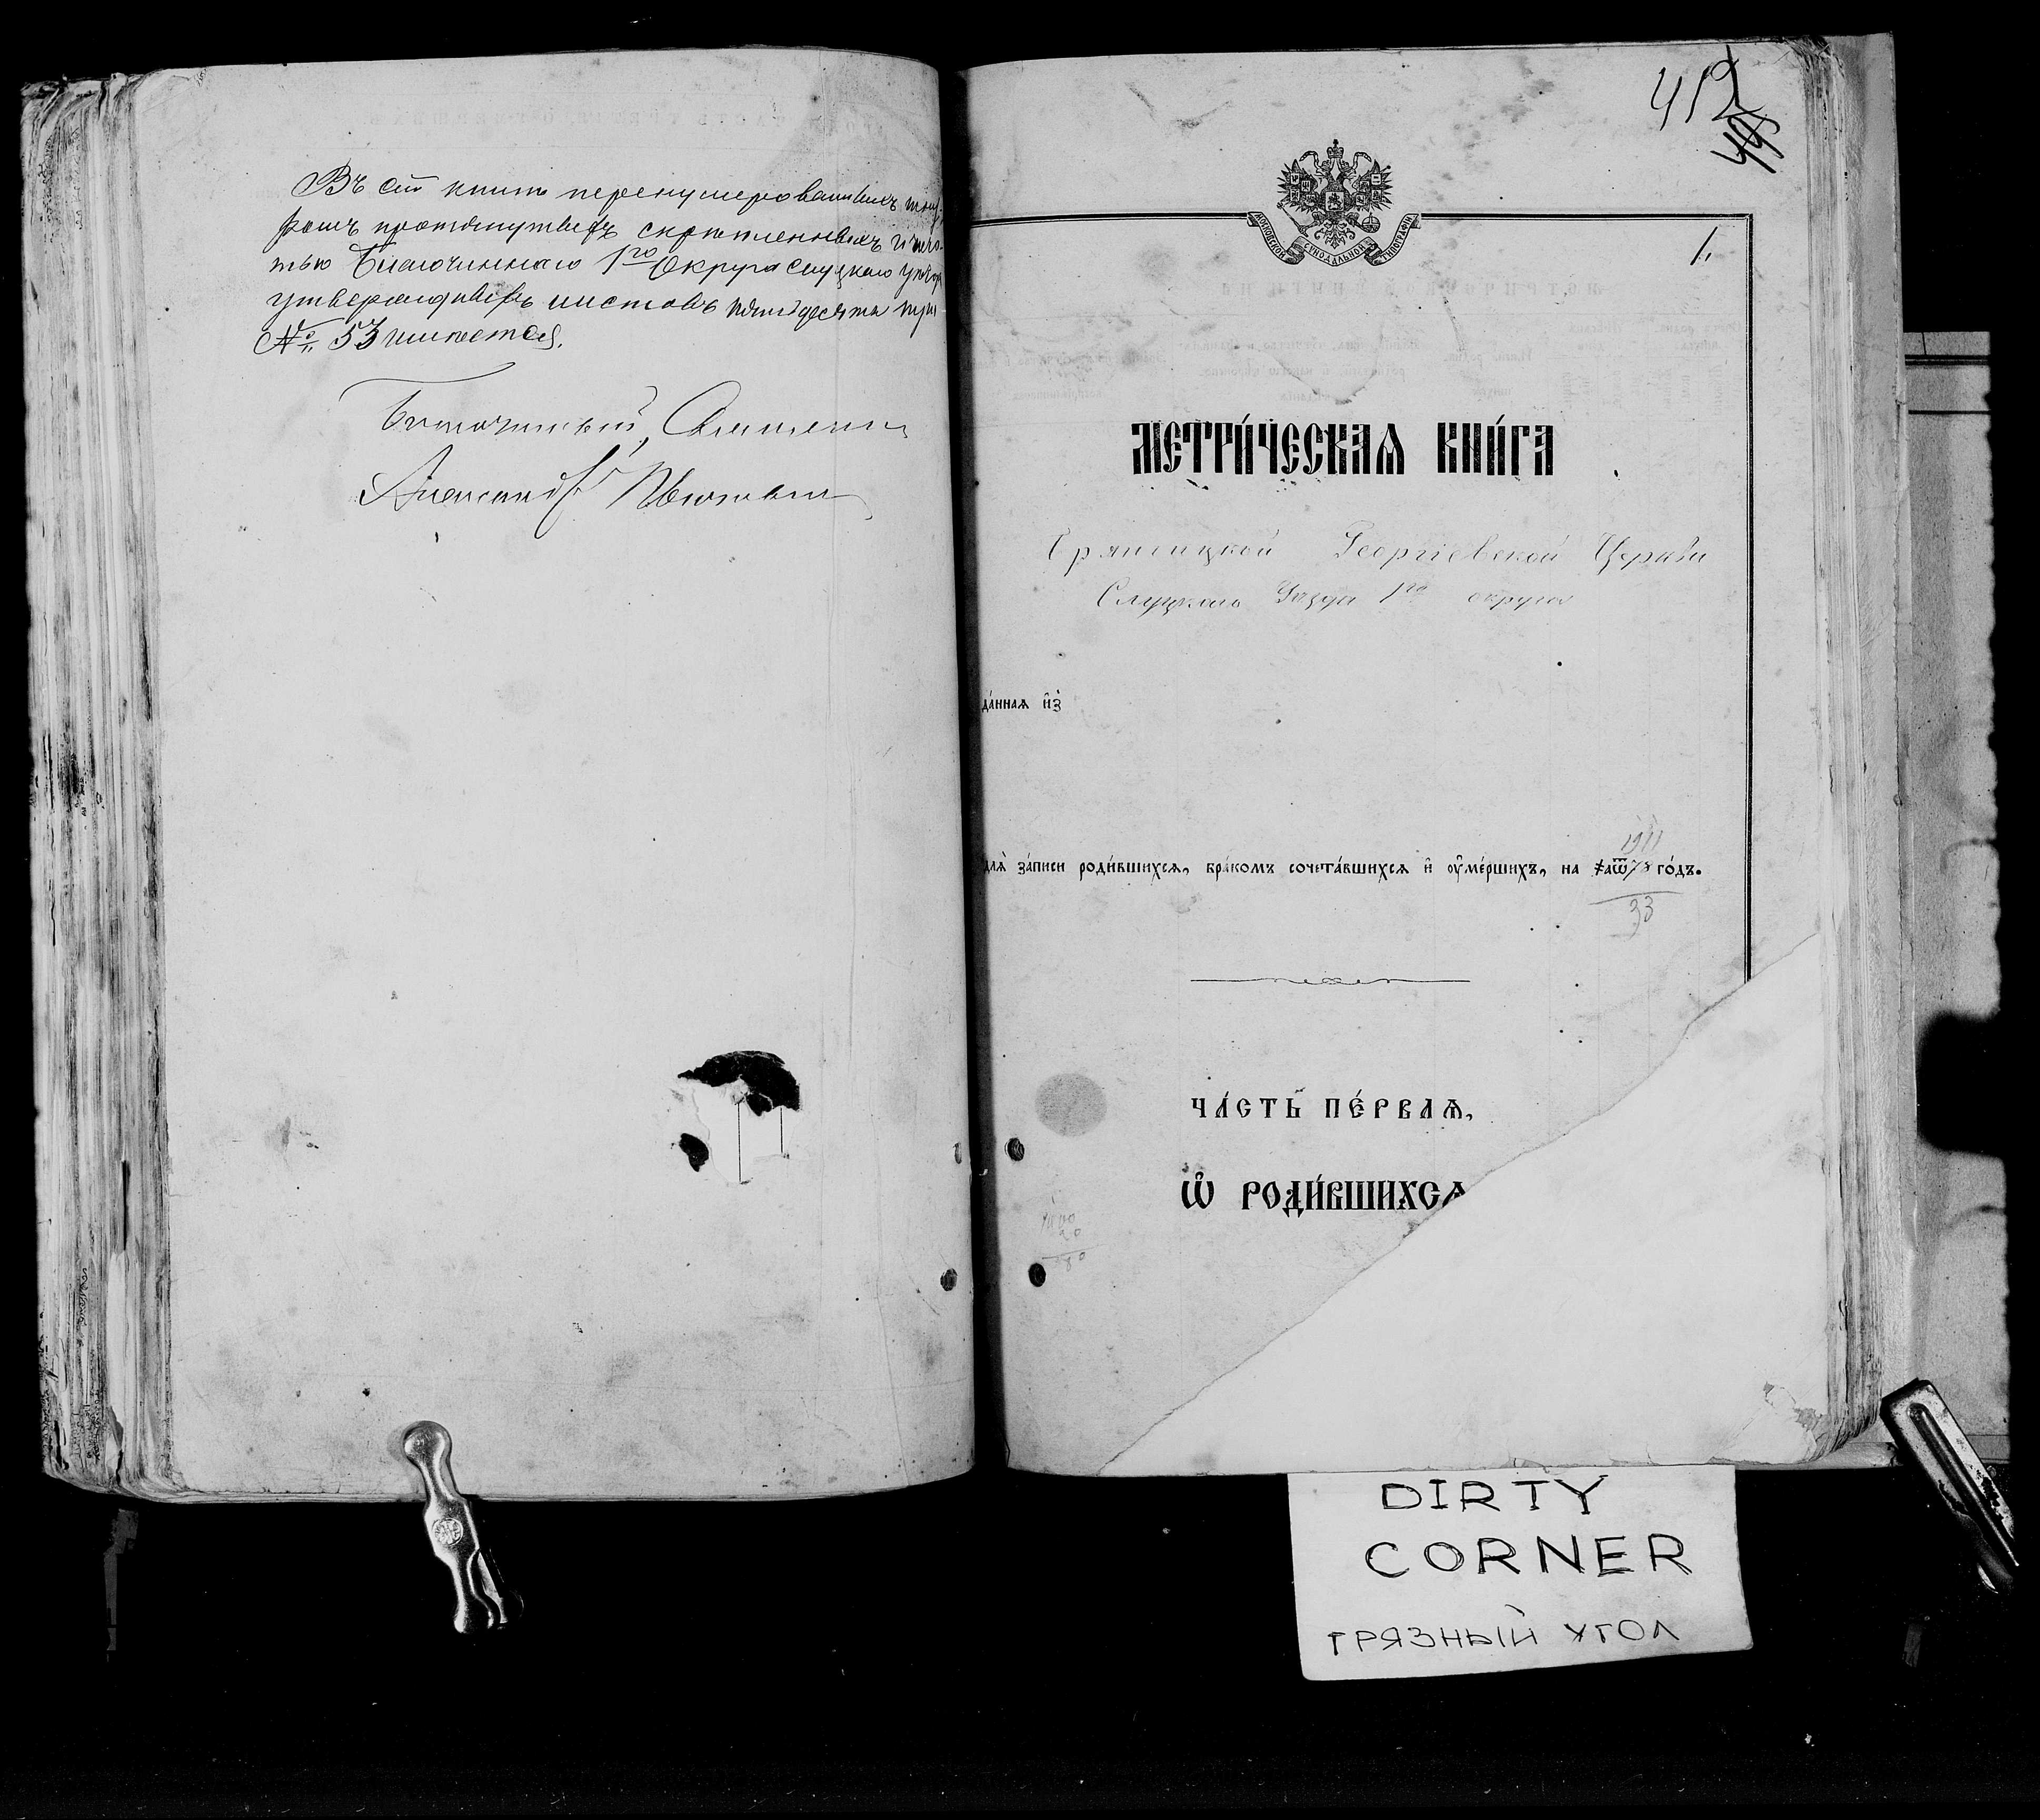 Въ сей книгѣ перенумерованныхъ
протянутыхъ скрѣпленныхъ и печа-
тью Благочиннаго 1го Округа Слуцкаго уѣзда
утвержденныхъ листовъ пятьдесятъ три
№ 53 имѣется.
Благочинный, Священн
Александръ
412
1.
МОСКОВСКОЙ СѴНОДАЛЬНОЙ ТИПОГРАФІИ
МЕТРИ́ЧЕСКАѦ КНИ́ГА
Георгіевской Церкви
Слуцкаго Уѣзда 1го округа
да́ннаѧ и҆з̾
1911
длѧ̀ за́писи роди́вшихсѧ, бра́комъ сочета́вшихсѧ и҆ ᲂу҆ме́ршихъ, на ҂аѿ78 го́дъ.
33
ЧА́СТЬ ПЕ́РВАѦ,
Ѡ҆ РОДИ́ВШИХСѦ
DIRTY
CORNER
ГРЯЗНЫЙ УГОЛ